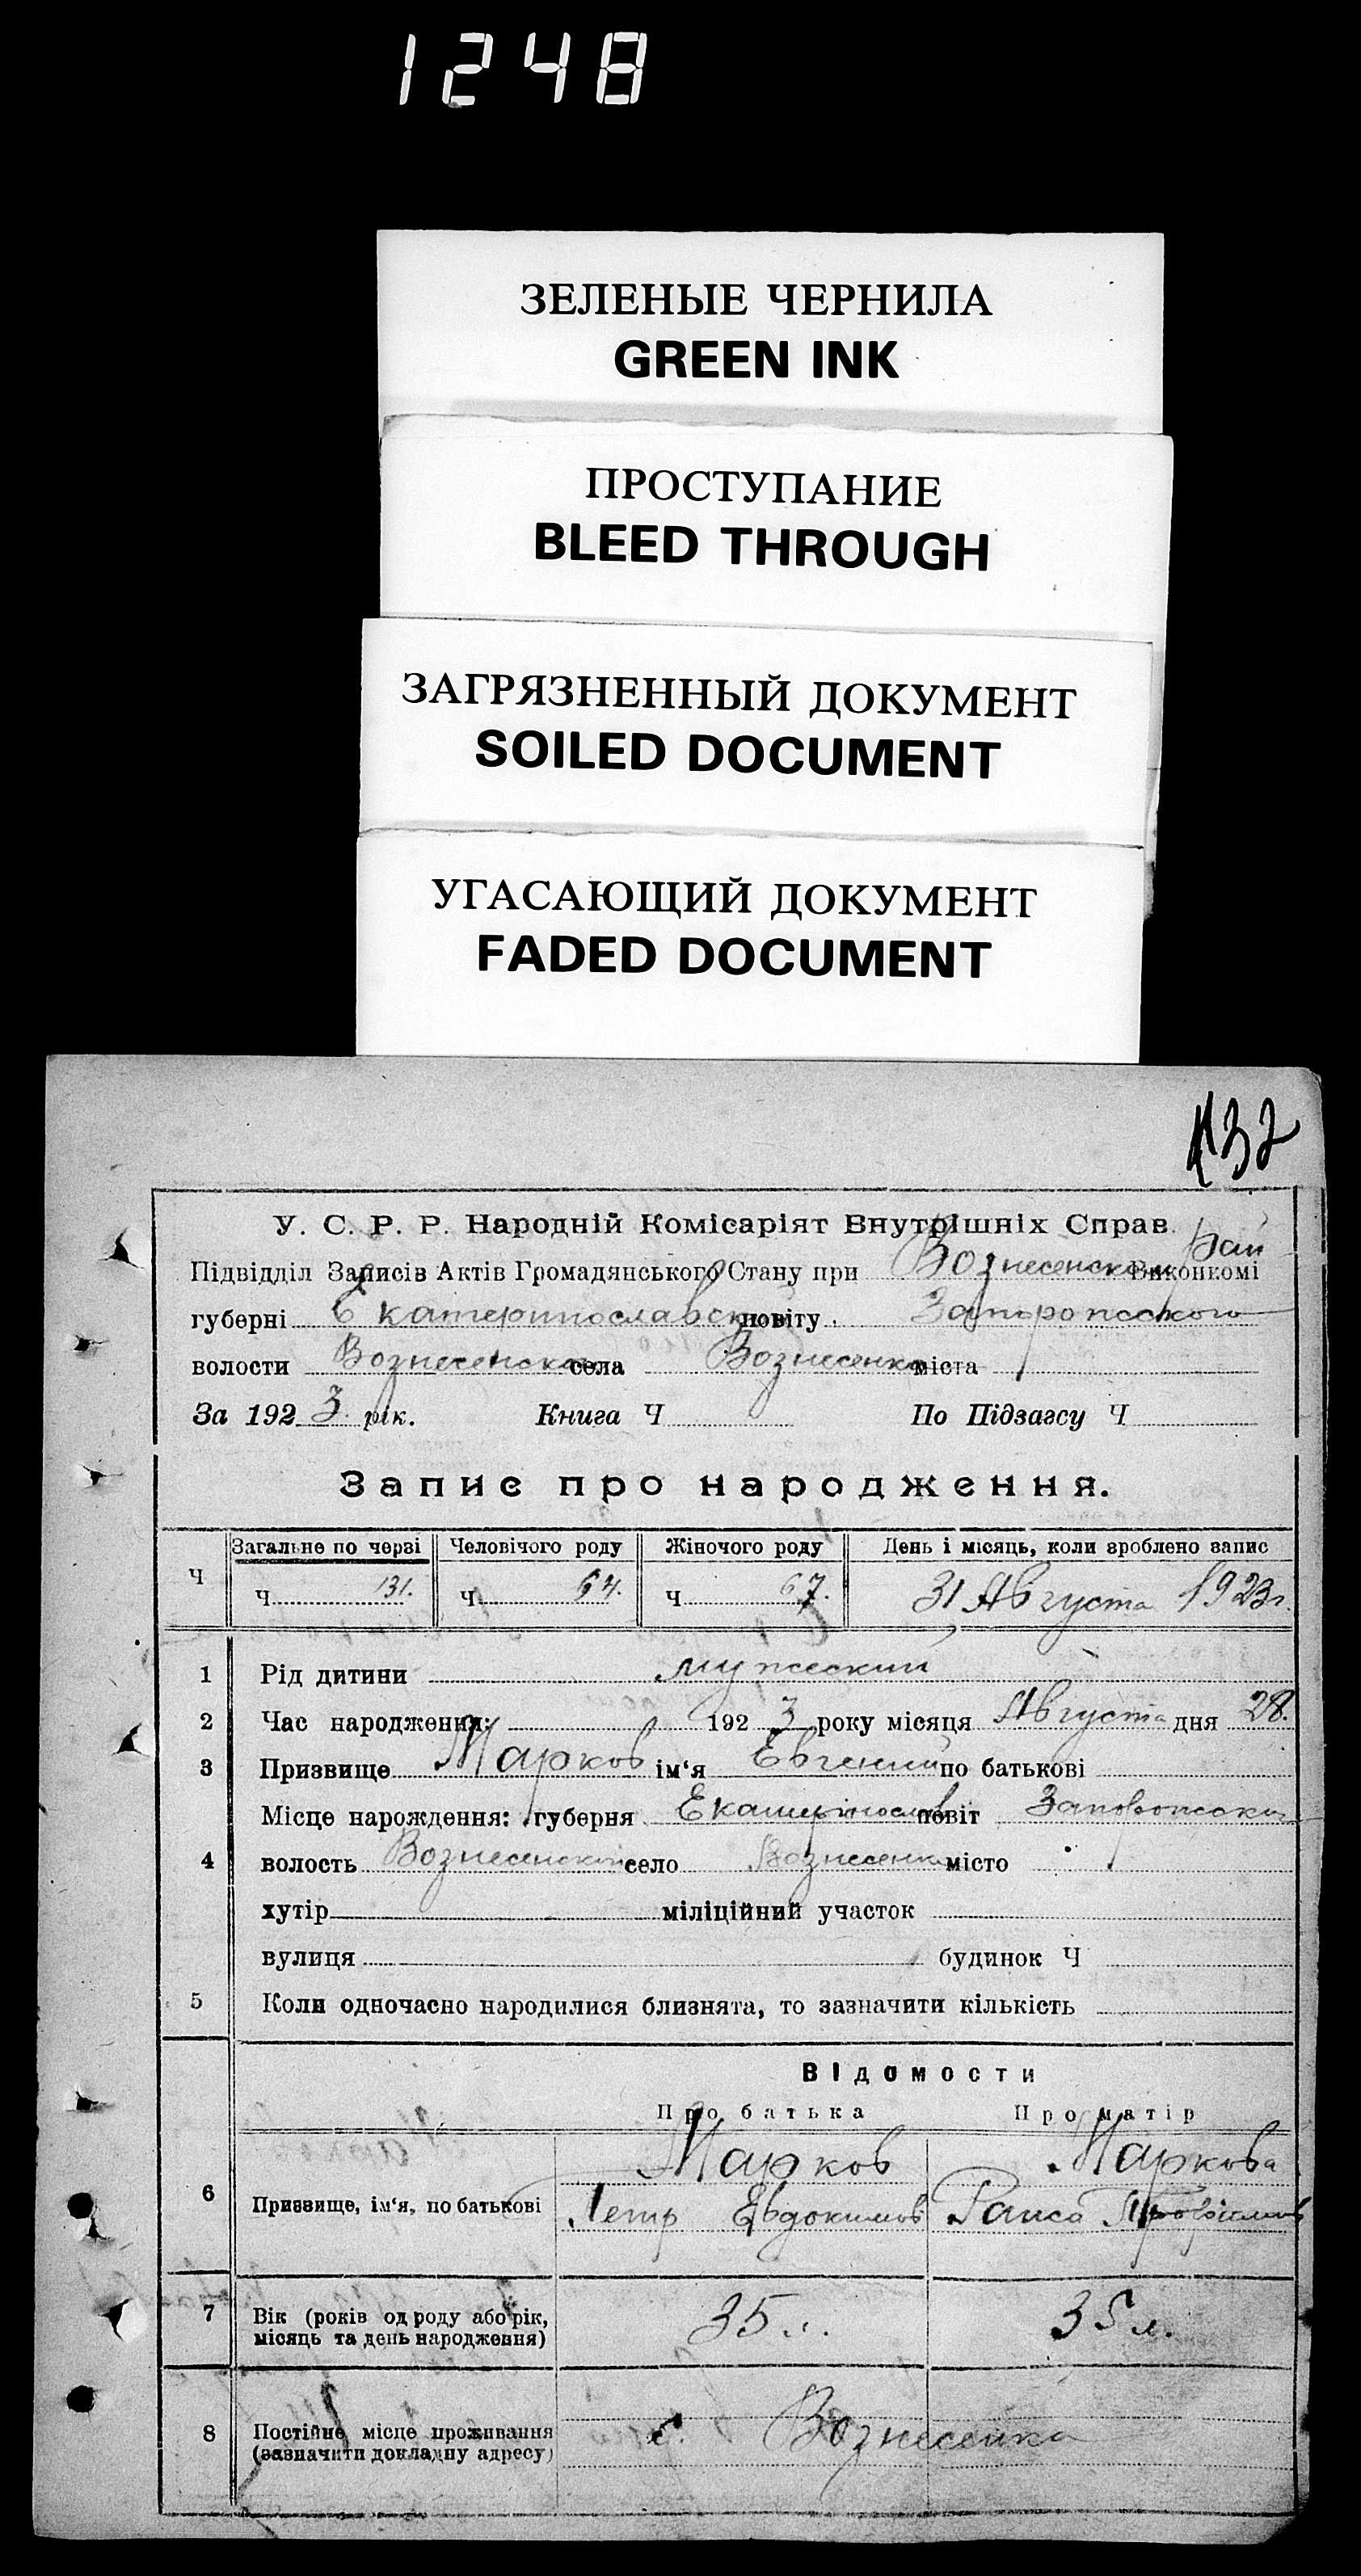 1248
ЗЕЛЕНЫЕ ЧЕРНИЛА
GREEN INK
ПРОСТУПАНИЕ
BLEED THROUGH
ЗАГРЯЗНЕННЫЙ ДОКУМЕНТ
SOILED DOCUMENT
УГАСАЮЩИЙ ДОКУМЕНТ
FADED DOCUMENT
У. С. Р. Р. Народній Комісаріят Внутрішніх Справ.
Підвідділ Записів Актів Громадянського Стану при Вознесенском Виконкомі
губерні Екатеринославской повіту Запорожского
волости Вознесенской села Вознесенка міста
За 1923 рік. Книга Ч По Підзагсу Ч
Запис про народження.
Ч Загальне по черзі Человічого роду Жіночого роду День і місяць, коли зроблено запис
Ч 131. Ч 64. Ч 67. 31 Августа 1923 г.
1 Рід дитини мужеский
2 Час народження: 1923 року місяця Августа дня 28.
3 Призвище Марков ім'я Евгений по батькові
Місце народження: губерня Екатеринослав повіт
4 волость Вознесенской село Вознесенка місто
хутір міліційний участок
вулиця будинок Ч
5 Коли одночасно народилися близнята, то зазначити кількість
Відомости
Про батька Про матір
Марков Маркова
6 Призвище, ім'я, по батькові Петр Евдокимов Раиса
7 Вік (років од роду або рік, 35 л. 35 л.
місяць та день народження)
8 Постійне місце проживання с. Вознесенка
(зазначити докладну адресу)